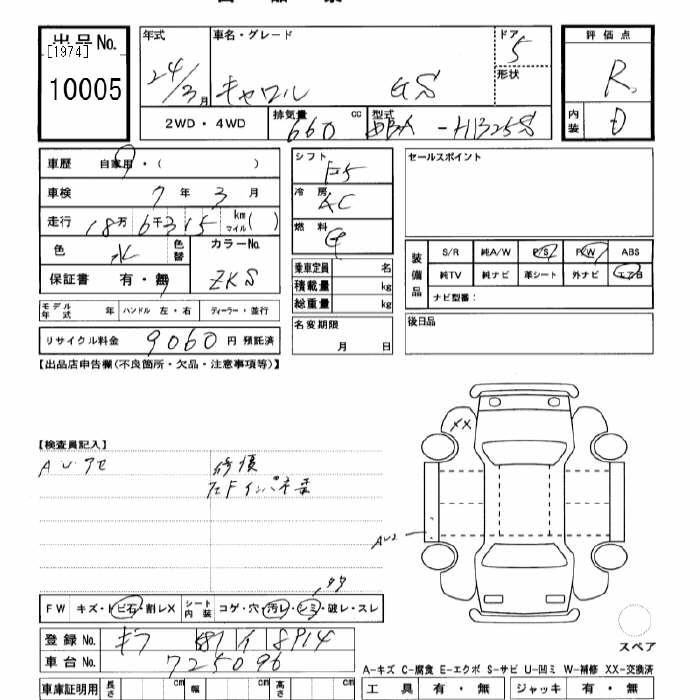 出品No.
[1974]
10005
年式 車名・グレード ドア 5
24/3月 キャロル GS 形状
2WD・4WD 排気量 660 cc 型式 DBA-HB25S
評価点
R
内装 D
車歴 自家用・( )
車検 7年 3月
走行 18万6千315 km マイル( )
色 水 色替 カラーNo.
保証書 有・無 ZKS
モデル年式 年 ハンドル 左・右 ディーラー・並行
リサイクル料金 9060 円 預託済
シフト F5
冷房 AC
燃料 G
乗車定員 名
積載量 kg
総重量 kg
名変期限
月 日
セールスポイント
装備品 S/R 純A/W P/S P/W ABS
純TV 純ナビ 革シート 外ナビ エアB
ナビ型番:
後日品
【出品店申告欄(不良箇所・欠品・注意事項等)】
【検査員記入】
AU.アセ 修復
左Fインパネ歪
XX
AU2
FW キズ・トビ石・割レX シート内装 コゲ・穴・汚レ・シミ・破レ・スレ
登録No. 8914
車台No. 725096
車庫証明用 長さ cm 幅 cm 高さ cm
スペア
A-キズ C-腐食 E-エクボ S-サビ U-凹ミ W-補修 XX-交換済
工具 有・無 ジャッキ 有・無